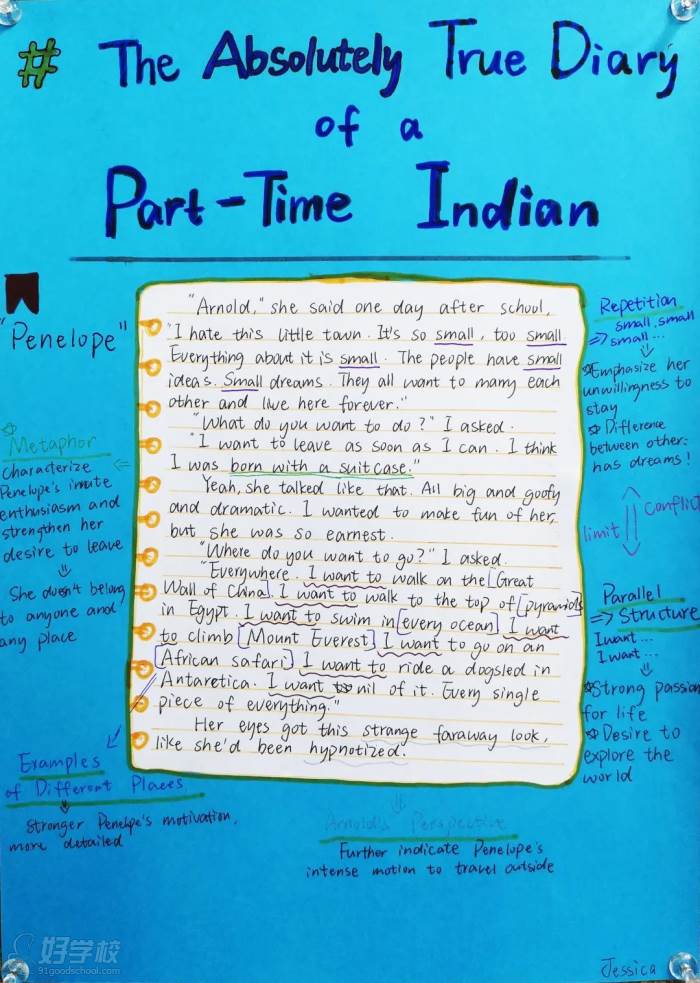 # The Absolutely True Diary
of a
Part-Time Indian
"Penelope"
"Arnold," she said one day after school,
"I hate this little town. It's so small, too small.
Everything about it is small. The people have small
ideas. Small dreams. They all want to marry each
other and live here forever."
"What do you want to do?" I asked.
"I want to leave as soon as I can. I think
I was born with a suitcase."
Yeah, she talked like that. All big and goofy
and dramatic. I wanted to make fun of her,
but she was so earnest.
"Where do you want to go?" I asked.
"Everywhere. I want to walk on the [Great
Wall of China]. I want to walk to the top of [pyramids
in Egypt. I want to swim in [every ocean]. I want
to climb [Mount Everest]. I want to go on an
[African safari]. I want to ride a dogsled in
Antaretica. I want to nil of it. Every single
piece of everything."
Her eyes got this strange faraway look,
like she'd been hypnotized.
Metaphor
characterize
Penelope's innate
enthusiasm and
strengthen her
desire to leave
She doesn't belong
to anyone and
any place
Examples
of Different Places
Stronger Penelope's motivation,
more detailed
Arnold's Perspective
Further indicate Penelope's
intense motion to travel outside
Repetition
small, small
=> small...
Emphasize her
unwillingness to
stay
Difference
between other:
has dreams!
limit
Conflict
Parallel
=> Structure
I want...
I want...
Strong passion
for life
Desire to
explore the
world
Jessica
好学校
91goodschool.com